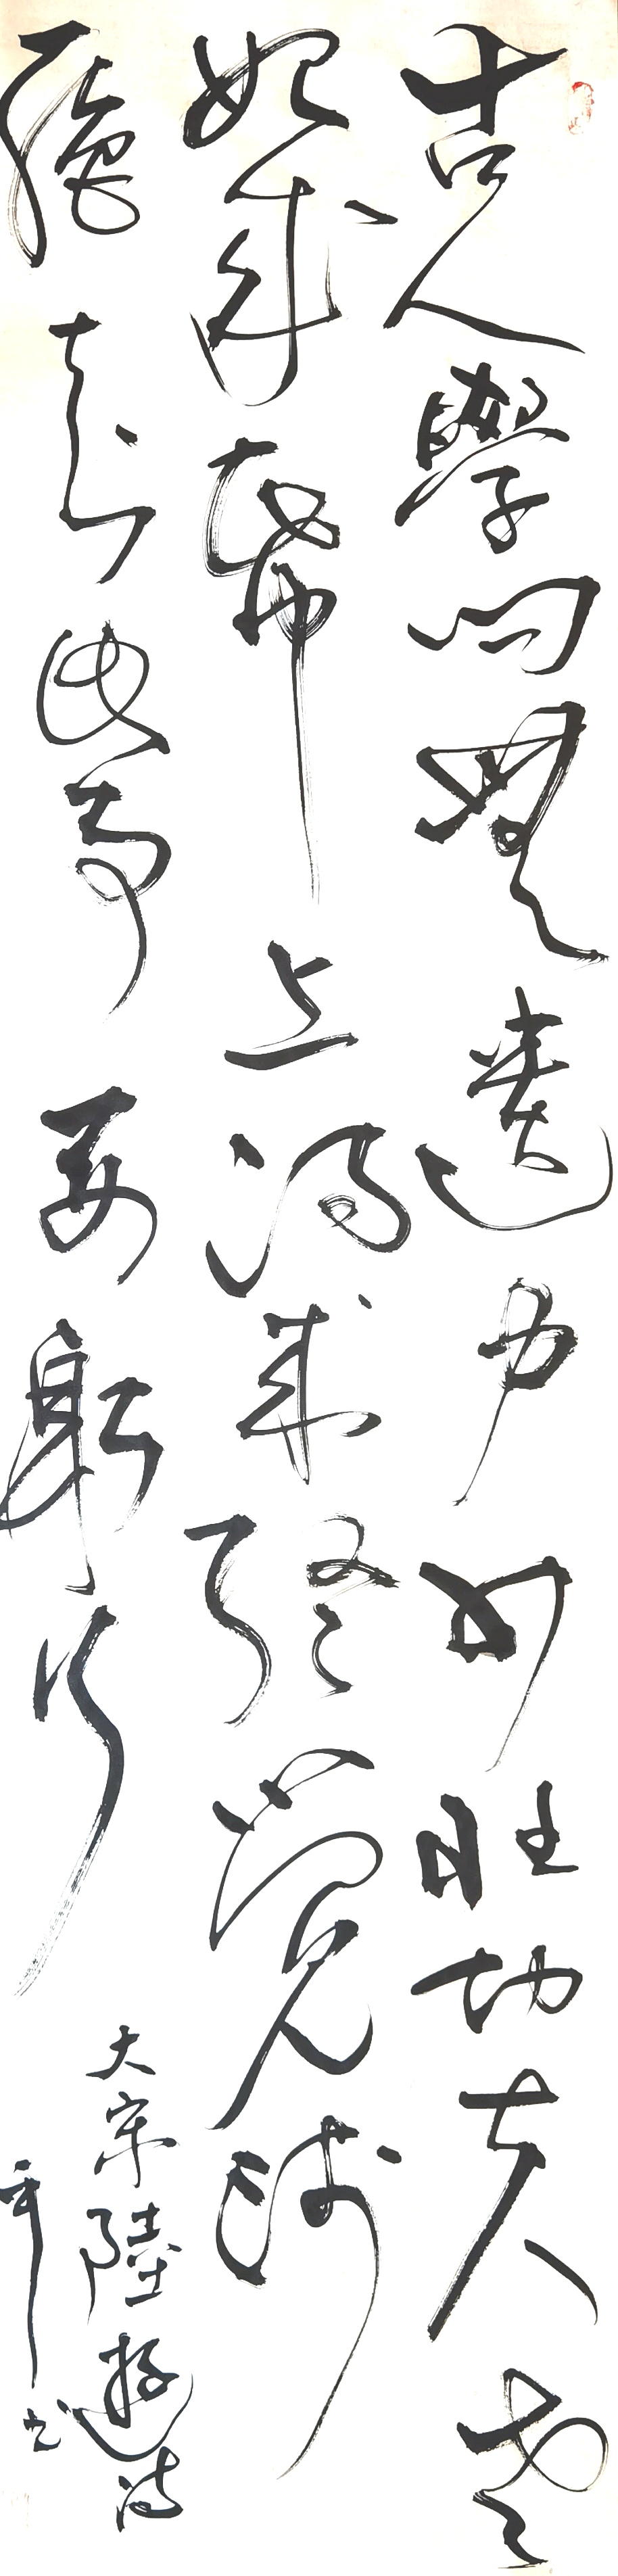 古人學問無遺力少壯功夫老
始成紙上得來終覺淺
絕知此事要躬行
大宋陸游詩
書